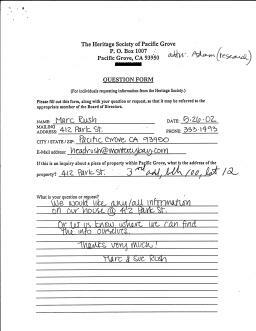 The Heritage Society of Pacific Grove
P. O. Box 1007
Pacific Grove, CA 93950
attn: Adam (research)
QUESTION FORM
(For individuals requesting information from the Heritage Society.)
Please fill out this form, along with your question or request, so that it may be referred to the
appropriate member of the Board of Directors.
NAME Marc Rush DATE 5-26-02
MAILING
ADDRESS 412 Park St. PHONE 333-1993
CITY / STATE / ZIP Pacific Grove CA 93950
E-Mail address
If this is an inquiry about a piece of property within Pacific Grove, what is the address of the
property? 412 Park St. 3rd add, blk 100, lot 12
What is your question or request?
We would like any/all information
on our house @ 412 Park St.
Or let us know where we can find
the info ourselves.
Thanks very much!
Marc & Sue Rush